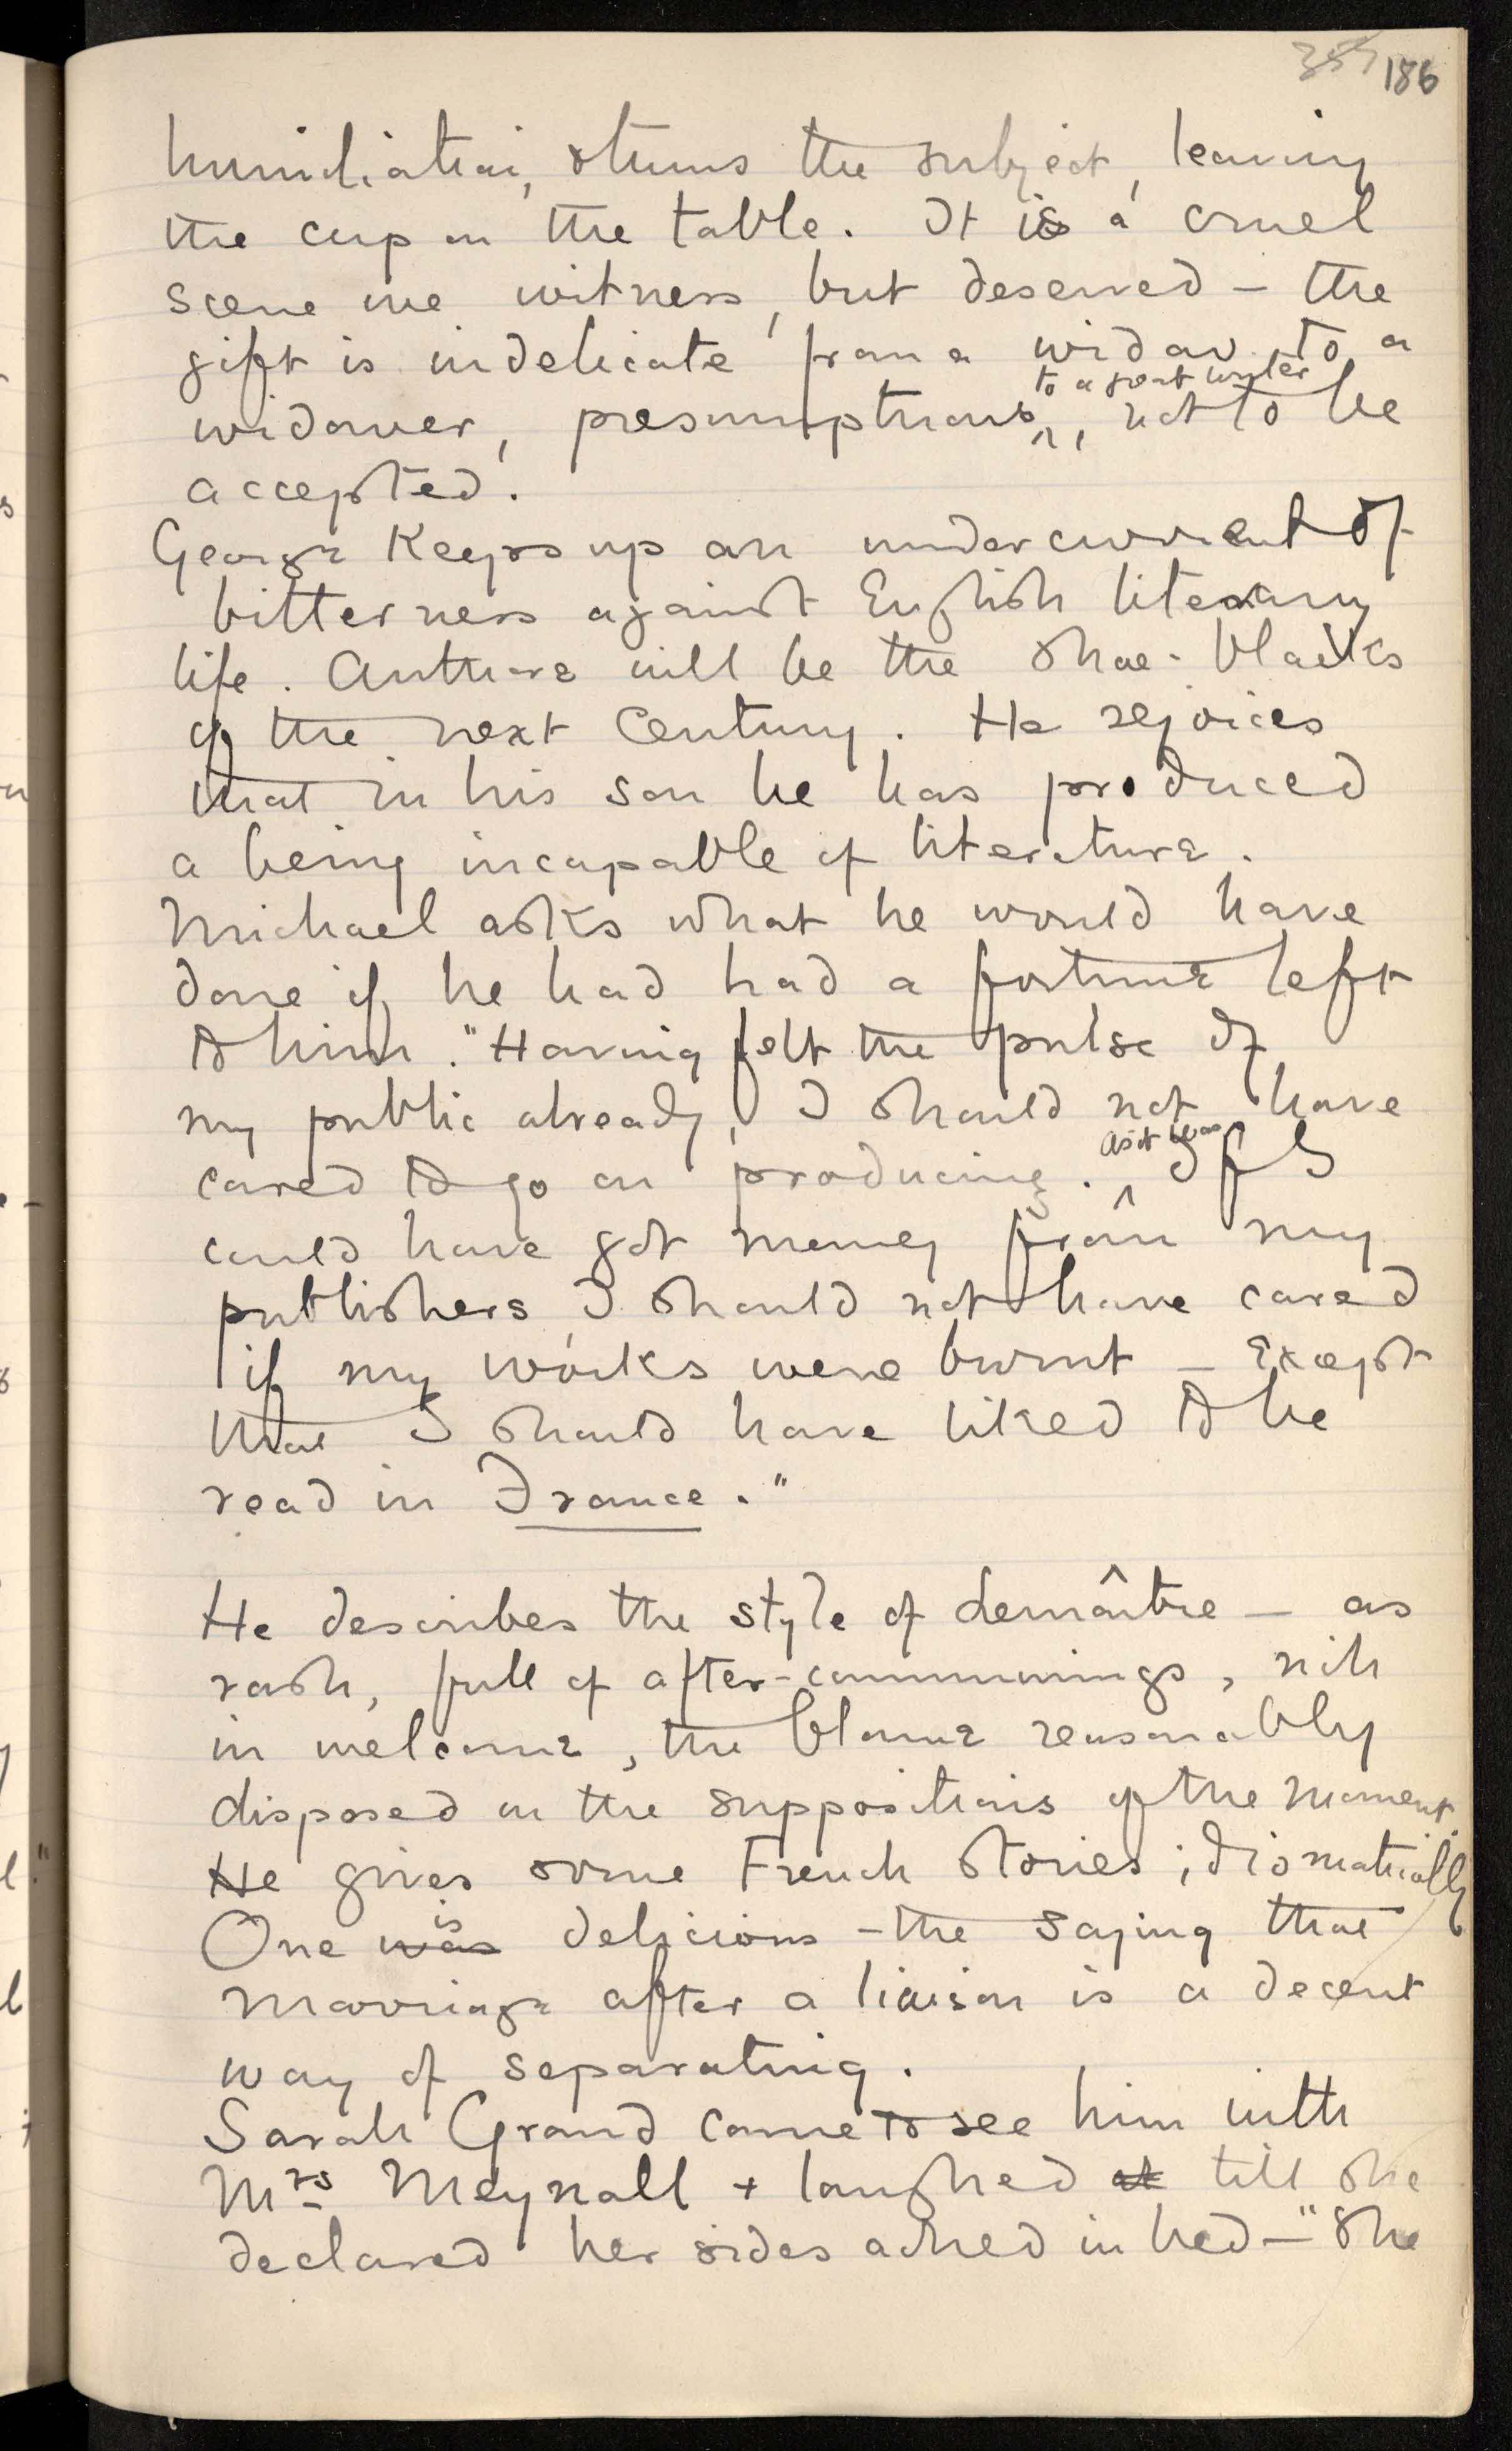 357 186
humiliation, shuns the subject, leaving
the cup on the table. It is a cruel
scene we witness, but deserved – the
gift is indelicate from a widow to a
to a great writer
widower, presumptuous ^, not to be
accepted.
George keeps up an undercurrent of
bitterness against English literary
life. Authors will be the shoe-blacks
of the next Century. He rejoices
that in his son he has produced
a being incapable of literature.
Michael asks what he would have
done if he had had a fortune left
to him. "Having felt the pulse of
my public already, I should not have
as it was
cared to go on producing. ^ If I
could have got money from my
publishers, I should not have cared
if my works were burnt – except
that I should have liked to be
read in France."
He describes the style of Lemâitre – as
rash, full of after-communings, rich
in welcome, the blame reasonably
disposed on the suppositions of the moment.
He gives some French stories; idiomatically
is
One was delicious – the saying that
marriage after a liaison is a decent
way of separating.
Sarah Grand came to see him with
Mrs Meynall + laughed at till she
declared her sides ached in bed – "She